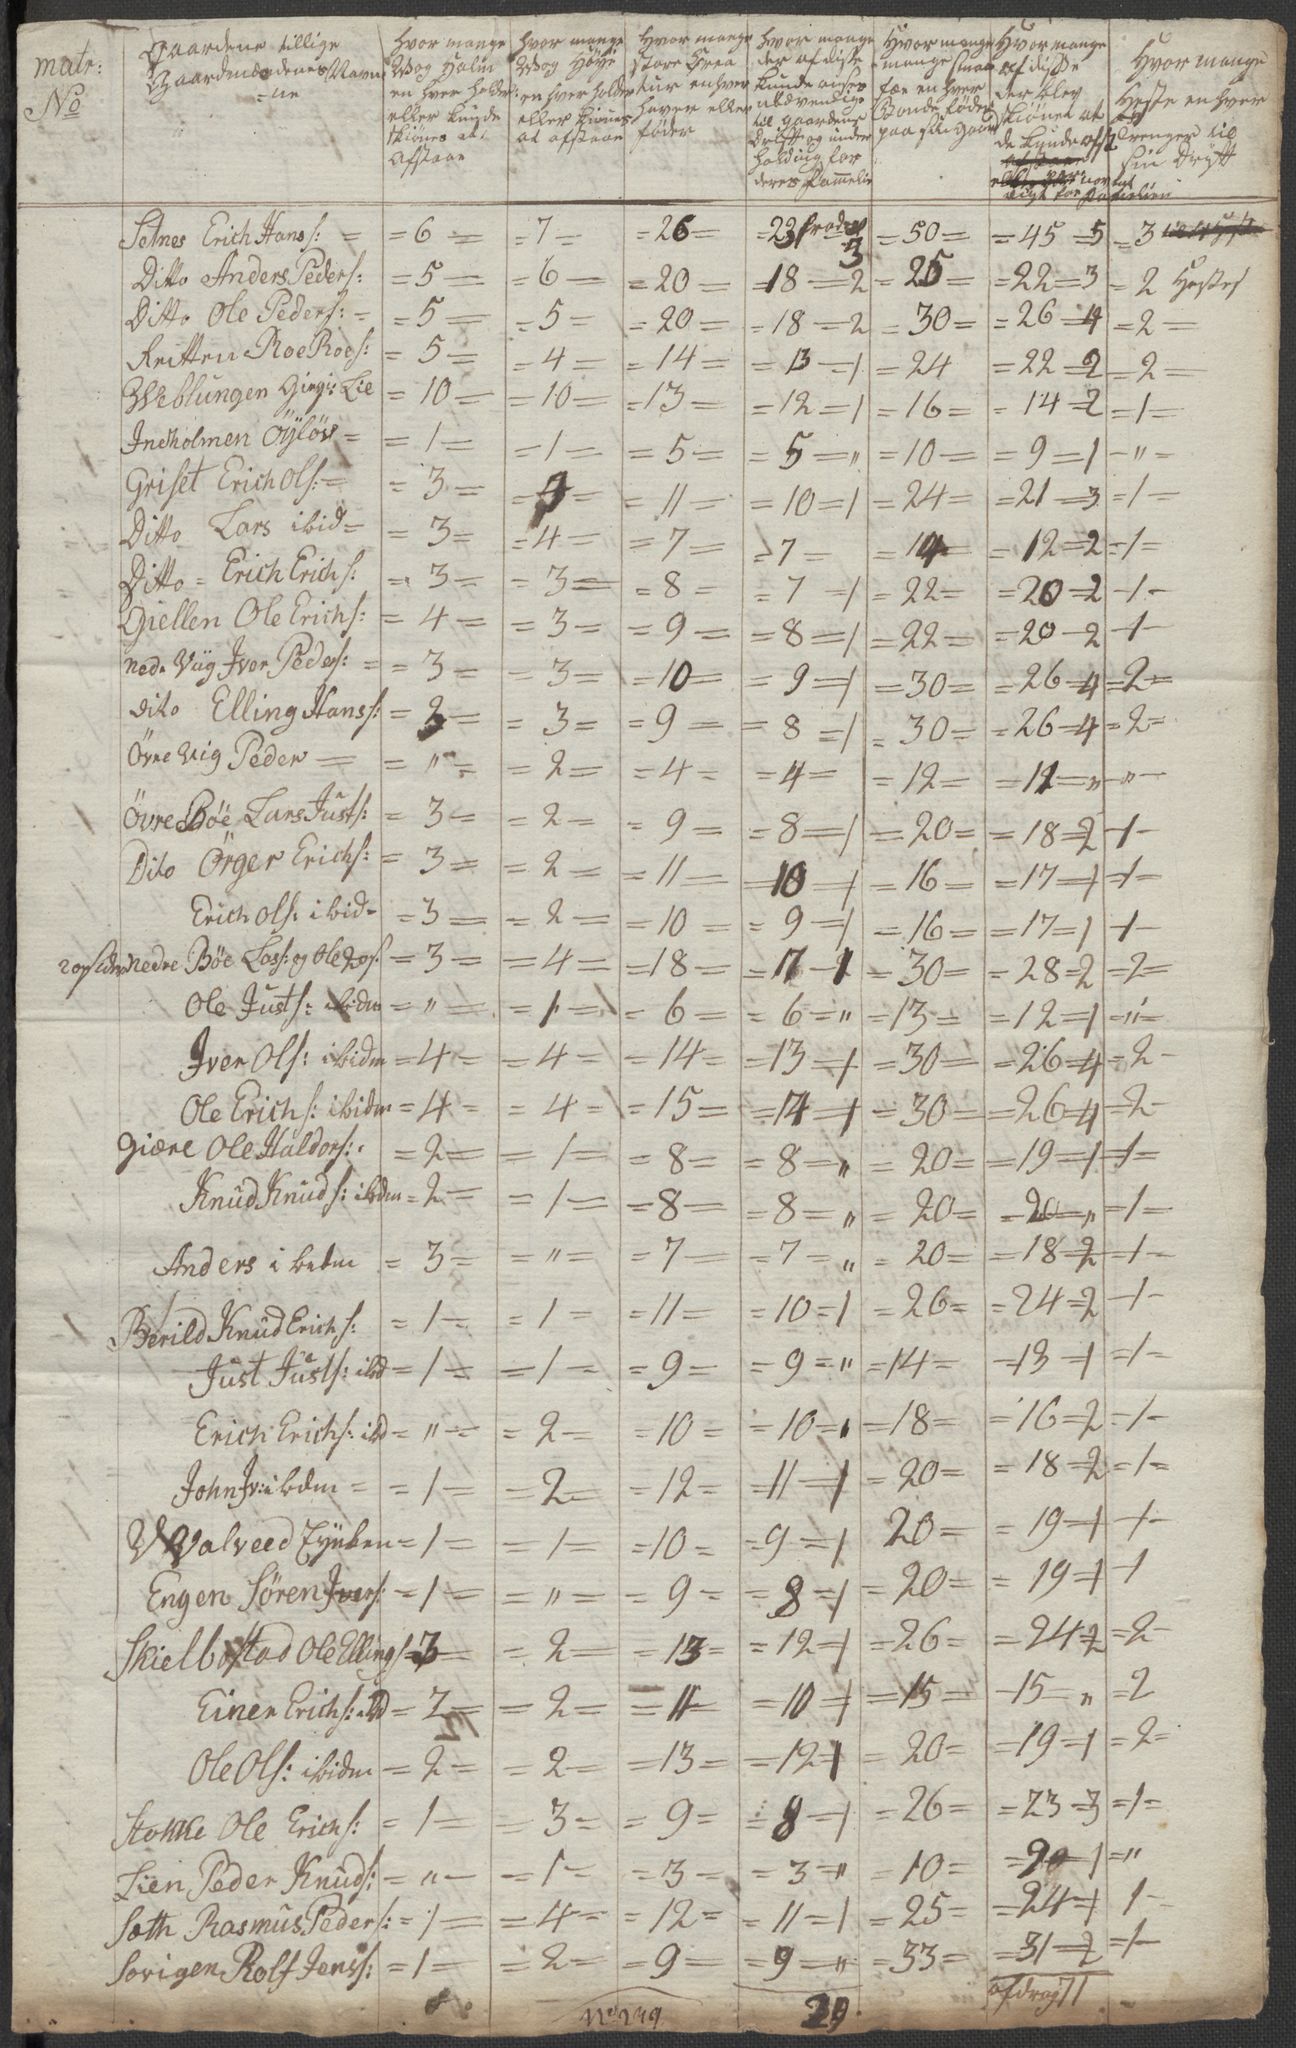 matr:
No
Gaardene tillige
Gaardmændenes Navne
hvor mange
Wog Halm
en hver holder
eller kunde
skiønes at
afstaae
hvor mange
Wog Høye
en hver holder
eller kiønes
at afstaae
Hvor mange
store Crea
tur en hver
haver eller
føder
hvor mange
der af disse
kunde anses
nødvendige
til gaardens
Drift og under
holding for
deres Fammelie
Hvor mange
smaa
fæe en hver
Bonde føder
paa sin Gaard
Hvor mange
af disse
der blev
skiønet at
de kunde afst
Hvor mange
Heste en hver
trenger til
sin Drift
Setnes Erich Hans: = = 6 = = 7 = = 26 = = 23 frad 3 = 50 = = 45 = 5 = 3
Ditto Anders Peders: = 5 = = 6 = = 20 = = 18 = 2 = 25 = = 22 = 3 = 2 Hester
Ditto Ole Peders: = = 5 = = 5 = = 20 = = 18 = 2 = 30 = = 26 = 4 = 2 =
Kritten Roe Roes: = 5 = = 4 = = 14 = = 13 = 1 = 24 = 22 = 2 = 2 =
Weblungen Giegr: Lie = 10 = = 10 = = 13 = = 12 = 1 = 16 = = 14 = 2 = 1 =
Indholmen Öÿlöv = = 1 = = 1 = = 5 = = 5 = " = 10 = = 9 = 1 = " =
Griset Erich Ols: = = 3 = = = 11 = = 10 = 1 = 24 = = 21 = 3 = 1 =
Ditto Lars ibid = = 3 = = 4 = = 7 = = 7 = = 14 = = 12 = 2 = 1 =
Ditto = Erich Erichs: = 3 = = 3 = = 8 = = 7 = 1 = 22 = = 20 = 2 = 1 =
Giellen Ole Erichs: = 4 = = 3 = = 9 = = 8 = 1 = 22 = = 20 = 2 = 1 =
nedr Viig Iver Peders: = = 3 = = 3 = = 10 = = 9 = 1 = 30 = = 26 = 4 = 2 =
dito Elling Hans: = 2 = = 3 = = 9 = = 8 = 1 = 30 = = 26 = 4 = 2 =
Övre Viig Peder = = " = = 2 = = 4 = = 4 = = 12 = = 12 = " = " =
Övre Böe Lars Justs: = 3 = = 2 = = 9 = = 8 = 1 = 20 = = 18 = 2 = 1 =
Dito Örger Erichs: = 3 = = 2 = = 11 = = 10 = 1 = 16 = = 17 = 1 = 1 =
Erich Ols: ibid = = 3 = = 2 = = 10 = = 9 = 1 = 16 = = 17 = 1 = 1 =
nedre Böe Lars: og Ole = 3 = = 4 = = 18 = = 17 = 1 = 30 = = 28 = 2 = 2 =
Ole Justs: ibidm = " = = 1 = = 6 = = 6 = " = 13 = = 12 = 1 = " =
Iver Ols: ibidm = 4 = = 4 = = 14 = = 13 = 1 = 30 = = 26 = 4 = 2 =
Ole Erichs: ibidm = 4 = = 4 = = 15 = = 14 = 1 = 30 = = 26 = 4 = 2 =
Giære Ole Haldors: = 2 = = 1 = = 8 = = 8 = " = 20 = = 19 = 1 = 1 =
Knud Knuds: ibdm = 2 = = 1 = = 8 = = 8 = " = 20 = = 20 = " = 1 =
Anders ibdm = 3 = = " = = 7 = = 7 = " = 20 = = 18 = 2 = 1 =
Berild Knud Erichs: = 1 = = 1 = = 11 = = 10 = 1 = 26 = = 24 = 2 = 1 =
Just Justs: ibd = 1 = = 1 = = 9 = = 9 = " = 14 = = 13 = 1 = 1 =
Erich Erichs: ibd = " = = 2 = = 10 = = 10 = " = 18 = = 16 = 2 = 1 =
John Iv: ibdm = = 1 = = 2 = = 12 = = 11 = 1 = 20 = = 18 = 2 = 1 =
Walveed = 1 = = 1 = = 10 = = 9 = 1 20 = = 19 = 1 = 1 =
Engen Sören Ivers: = 1 = = " = = 9 = = 8 = 1 = 20 = = 19 = 1 = 1
Skielbostad Ole Ellings: = 3 = = 2 = = 13 = = 12 = 1 = 26 = = 24 = 2 = 2 =
Einer Erichs: ibd = 2 = = 2 = = 11 = = 10 = 1 = 15 = = 15 = " = 2
Ole Ols: ibidm = 2 = = 2 = = 13 = = 12 = 1 = 20 = = 19 = 1 = 2 =
Stokke Ole Erichs: = 1 = = 3 = = 9 = = 8 = 1 = 26 = = 23 = 3 = 1 =
Lien Peder Knuds: = " = = 1 = = 3 = = 3 = " = 10 = = = 1 = "
Soth Rasmus Peders: = 1 = = 4 = = 12 = = 11 = 1 = 25 = = 24 = 1 1 =
Sorigen Rolf Jens: = 1 = = 2 = = 9 = = 9 = " = 33 = = 31 = 2 = 1 =
afdrag 71